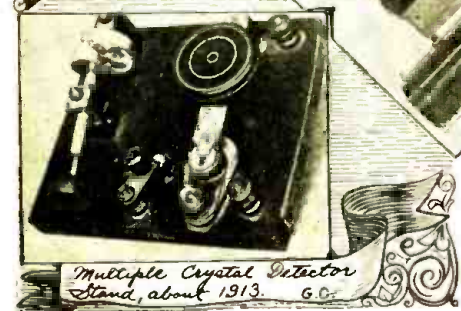 Multiple Crystal Detector
Stand, about 1913. G.G.